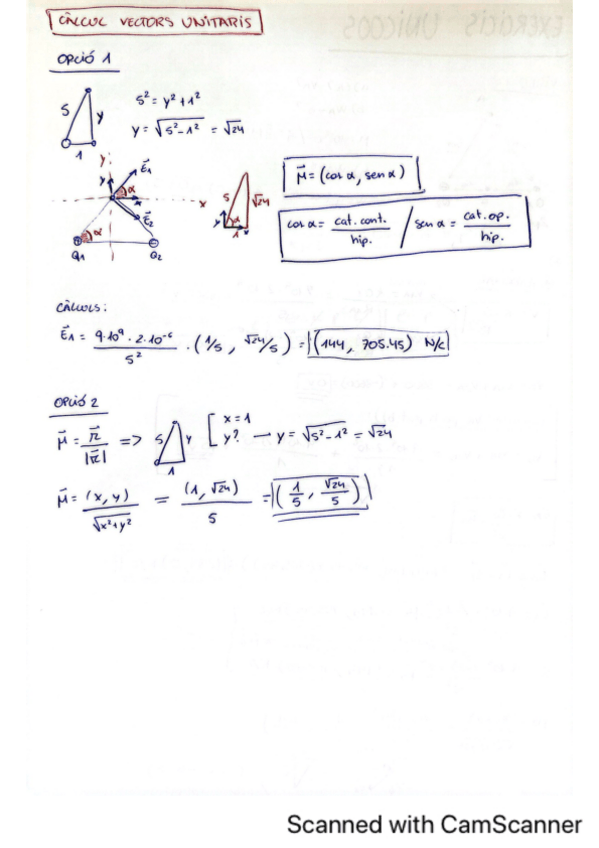 CÀLCUL VECTORS UNITARIS
OPCIÓ 1
5 y 1
5² = y² + 1²
y = √5²-1² = √24
y E⃗₁ α x E⃗₂ α Q₁ Q₂
5 √24 α 1 y x
μ⃗ = (cos α, sen α)
cos α = cat. cont. / hip. / sen α = cat. op. / hip.
CÀLCULS:
E⃗₁ = 9·10⁹ · 2·10⁻⁶ / 5² · (1/5, √24/5) = (144, 705.45) N/C
OPCIÓ 2
μ⃗ = r⃗ / |r⃗| => 5 y 1 [ x = 1
y? — y = √5²-1² = √24
μ⃗ = (x, y) / √x²+y² = (1, √24) / 5 = (1/5, √24/5)
Scanned with CamScanner